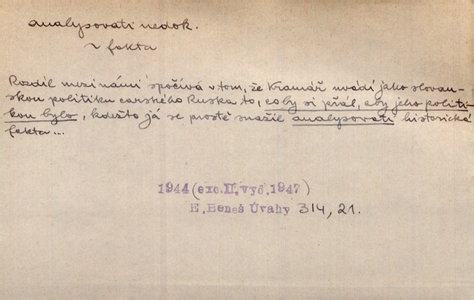 analysovati nedok.
~ fakta
Rozdíl mezi námi spočívá v tom, že Kramář uvádí jako slovan-
skou politiku carského Ruska to, co by si přál, aby jeho politi-
kou bylo, kdežto já se prostě snažil analysovati historická
fakta...
1944 (exc.II.vyd.1947)
E. Beneš Úvahy 314, 21.